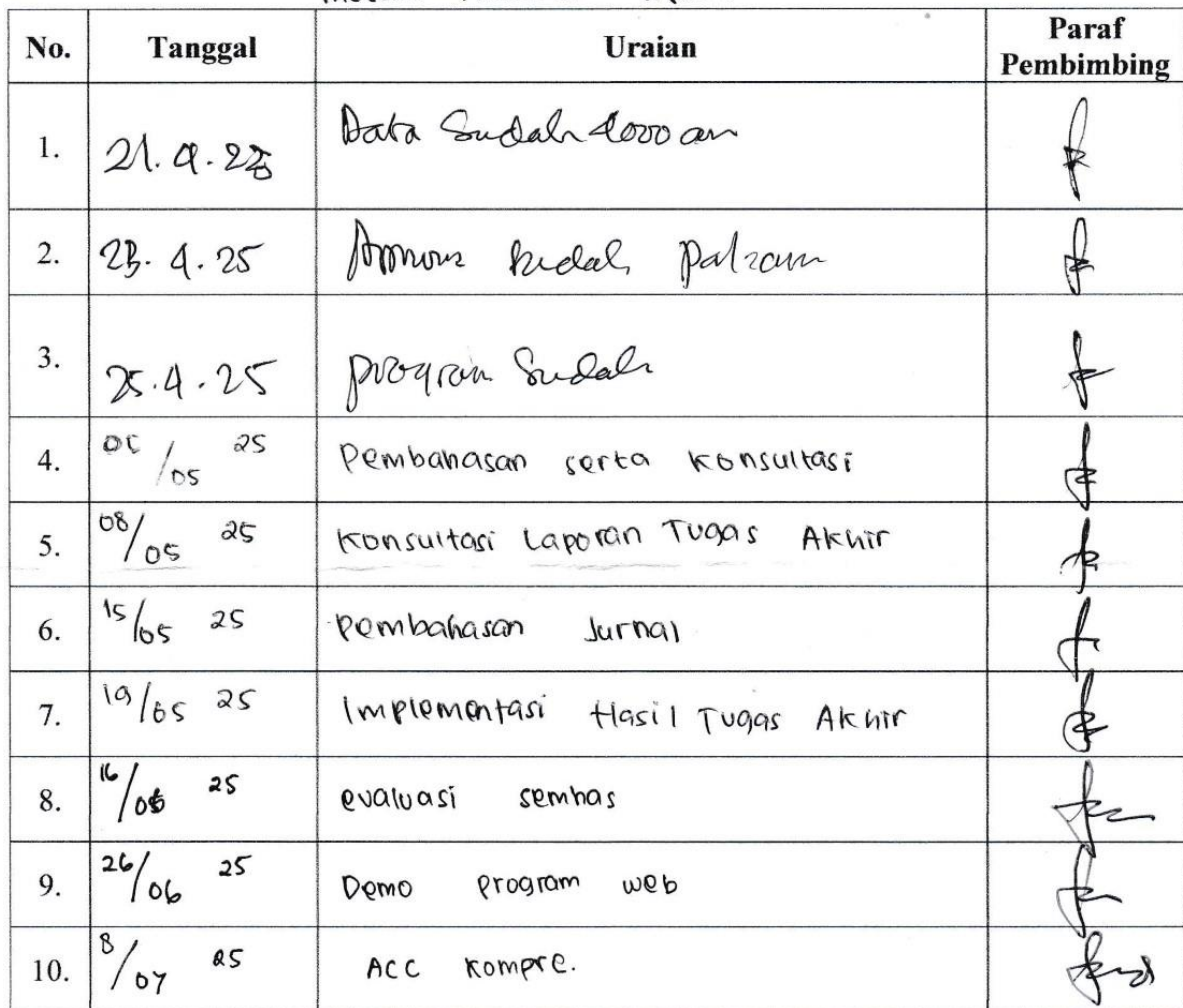 No. Tanggal Uraian Paraf Pembimbing
1. Data Sudah
2. 23.4.25
3. 25.4.25 program Sudah
4. /05 25 Pembahasan serta Konsultasi
5. 08/05 25 Konsultasi Laporan Tugas Akhir
6. 15/05 25 Pembahasan Jurnal
7. 19/05 25 Implementasi Hasil Tugas Akhir
8. 16/ 25 evaluasi semhas
9. 26/06 25 Demo program web
10. 8/07 25 ACC Kompre.